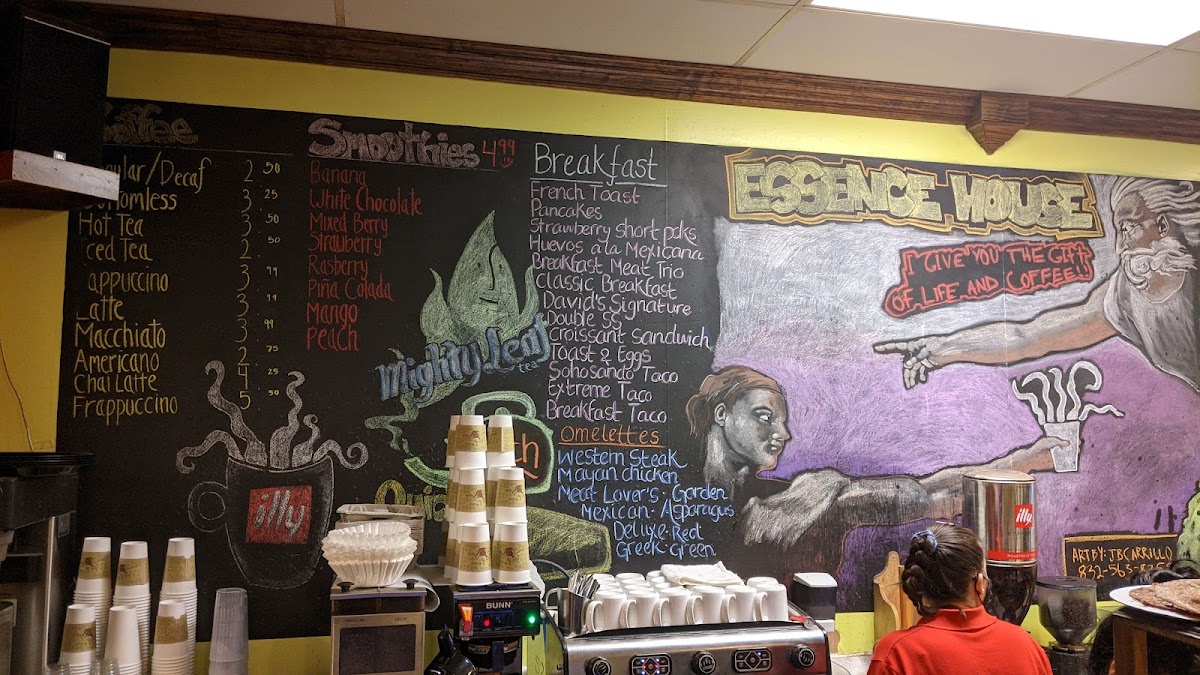 Coffee
gular/Decaf 2.50
ttomless 3.25
Hot Tea 3.50
ced Tea 2.50
appuccino 3.99
Latte 3.99
Macchiato 3.99
Americano 2.75
Chai Latte 4.25
Frappuccino 5.50
illy
Smoothies 4.99
Banana
White Chocolate
Mixed Berry
Strawberry
Rasberry
Piña Colada
Mango
Peach
Mighty Leaf
tea
ch
Qui
Breakfast
French Toast
Pancakes
Strawberry short paks
Huevos a la Mexicana
Breakfast Meat Trio
Classic Breakfast
David's Signature
Double SS
Croissant Sandwich
Toast 2 Eggs
Sohosando Taco
Extreme Taco
Breakfast Taco
Omelettes
Western Steak
Mayan Chicken
Meat Lover's · Garden
Mexican · Asparagus
Deluxe · Red
Greek · Green
ESSENCE HOUSE
I GIVE YOU THE GIFT
OF LIFE AND COFFEE!!
illy
ART BY: JBCARRILLO
832-563-
BUNN